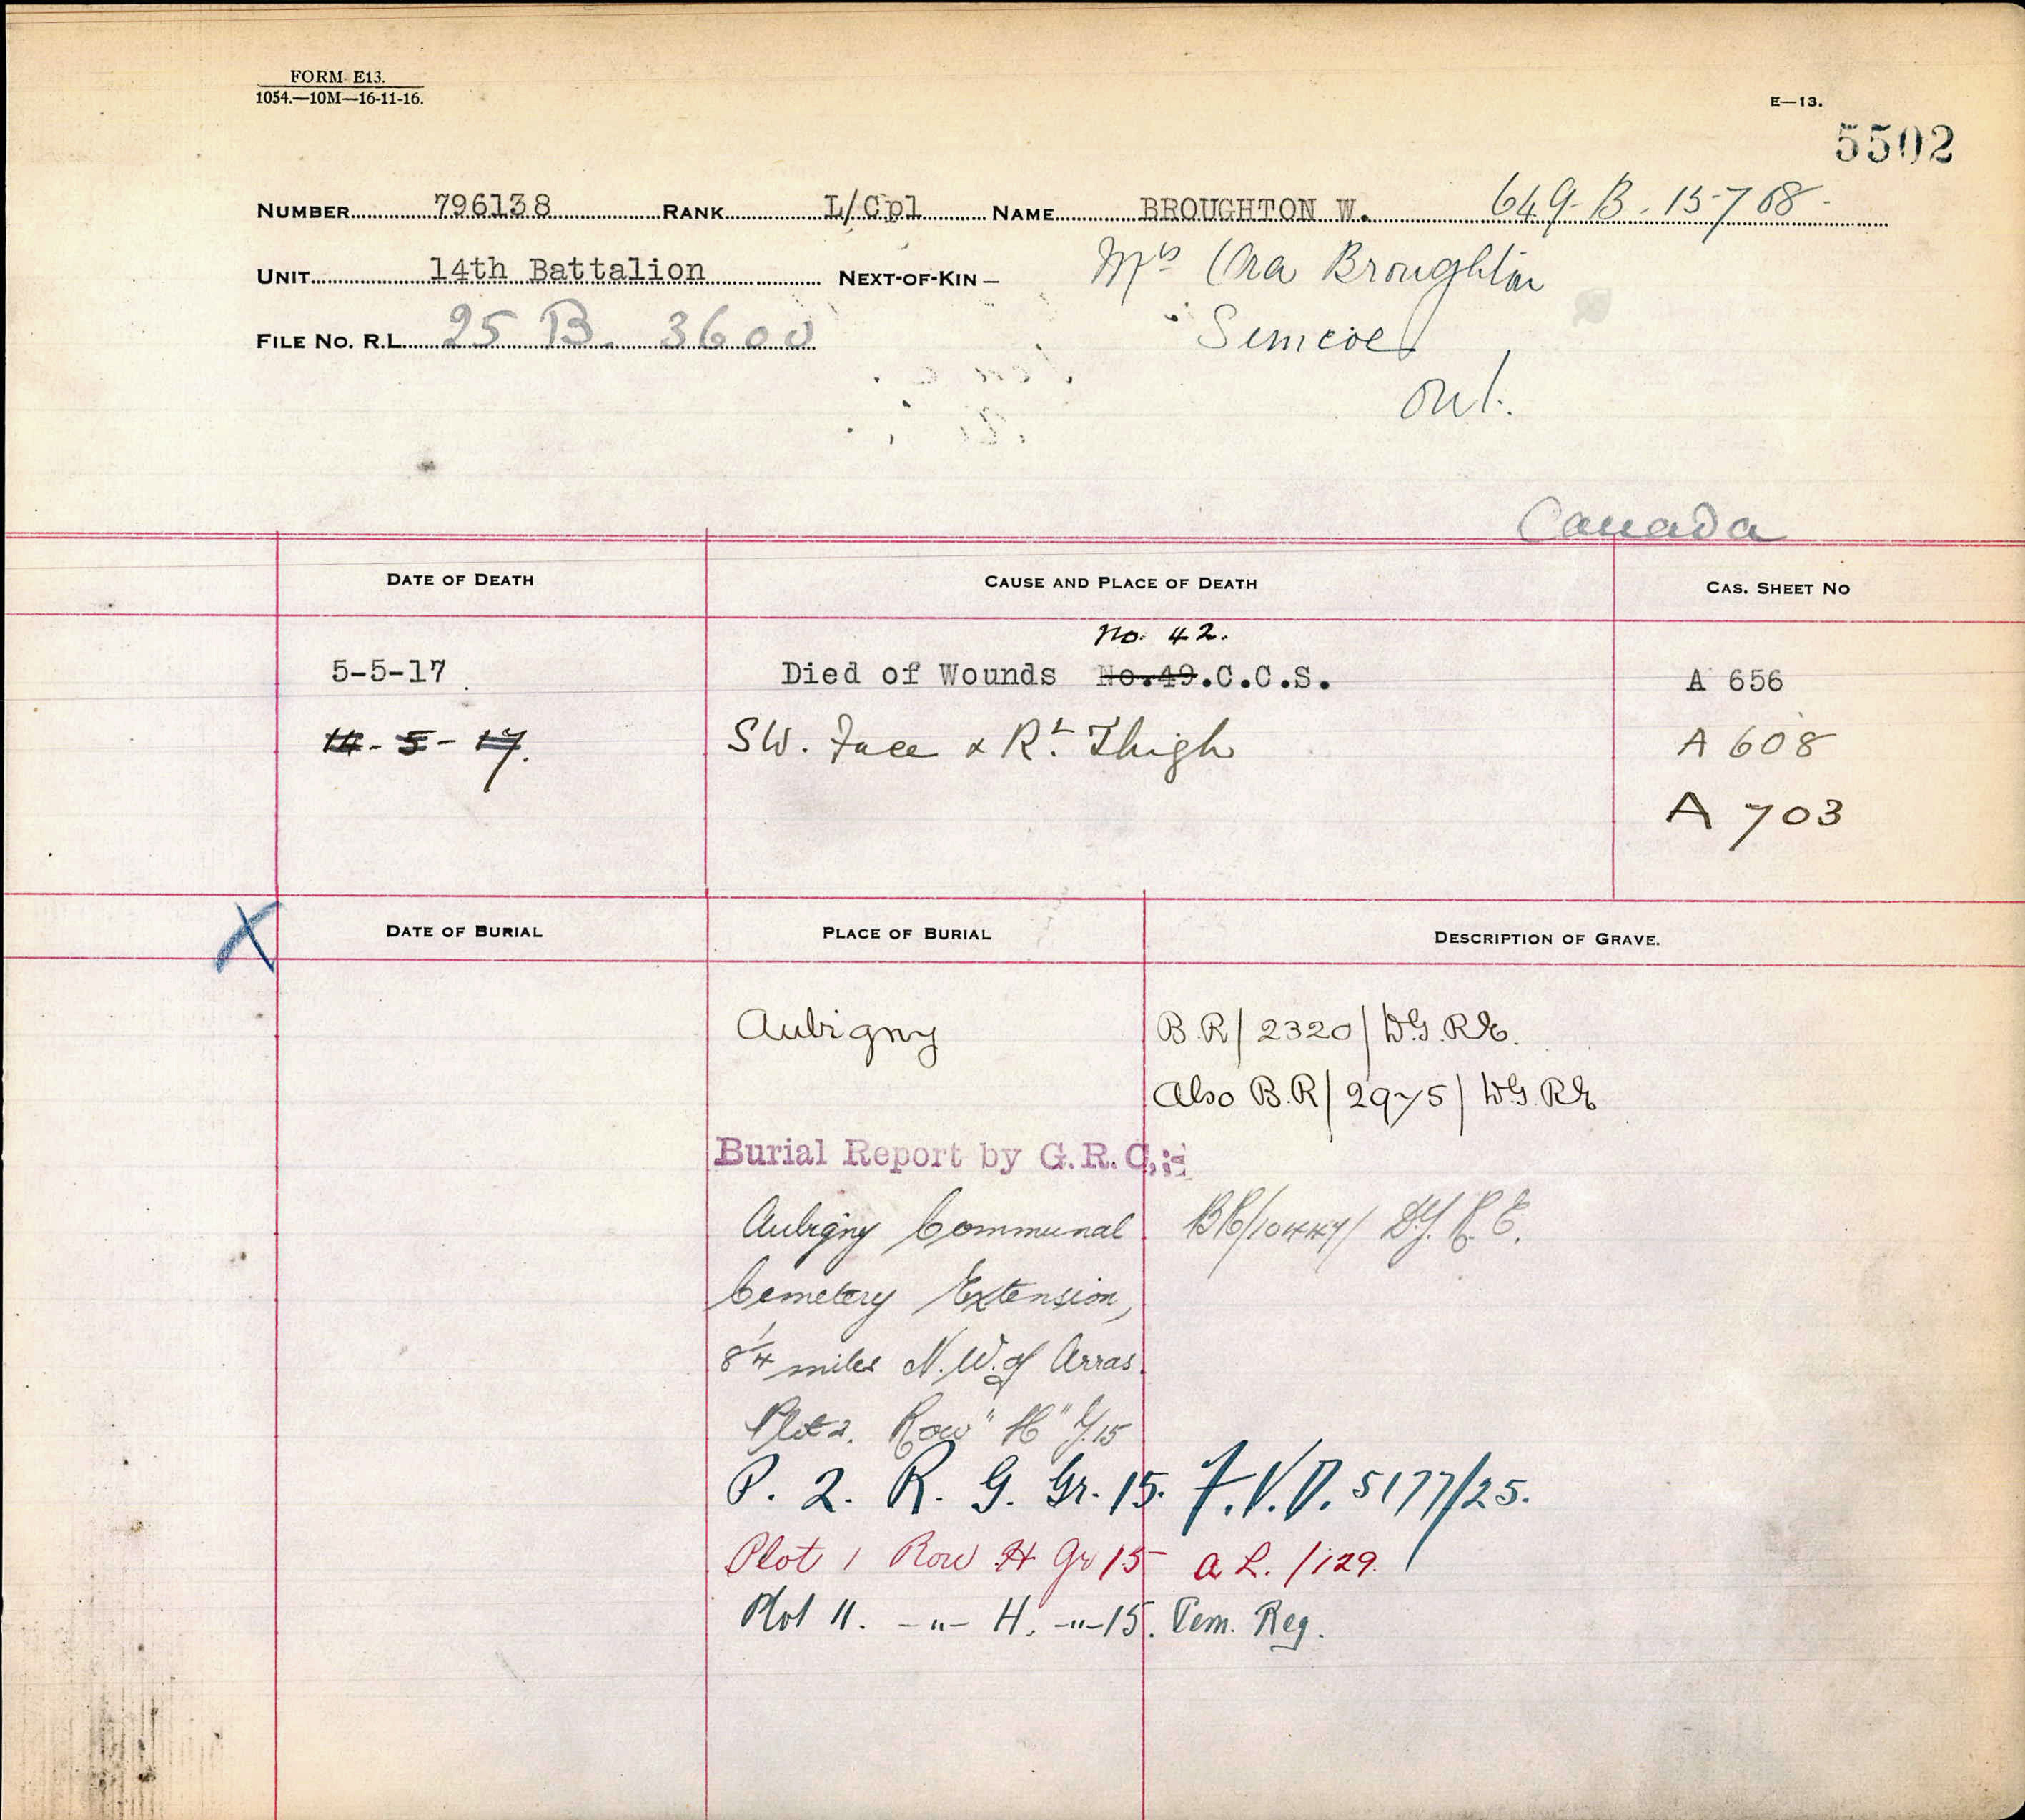 FORM E13.
1054.—10M—16-11-16.
E—13.
5502
NUMBER 796138 RANK L/Cpl NAME BROUGHTON W. 649-B-15768-
UNIT 14th Battalion NEXT-OF-KIN — Mrs Ora Broughton
FILE No. R.L. 25 B. 3600 Simcoe
Ont.
Canada
DATE OF DEATH CAUSE AND PLACE OF DEATH CAS. SHEET NO
No. 42.
5-5-17 Died of Wounds No.49.C.C.S. A 656
14-5-17. SW. Face & Rt. Thigh A 608
A 703
X
DATE OF BURIAL PLACE OF BURIAL DESCRIPTION OF GRAVE.
Aubigny B.R/2320/D.G.R.E.
Also B.R/2975/D.G.R.E
Burial Report by G.R.C,:-
Aubigny Communal BR/10447/D.G.R.E.
Cemetery Extension,
8 1/4 miles N.W. of Arras.
Plot 2. Row "H" G.15
P. 2. R. G. Gr. 15. F.V.D. 5177/25.
Plot 1 Row H Gr 15 A L. /129.
Plot 11. -"- H. -"- 15. Cem. Reg.